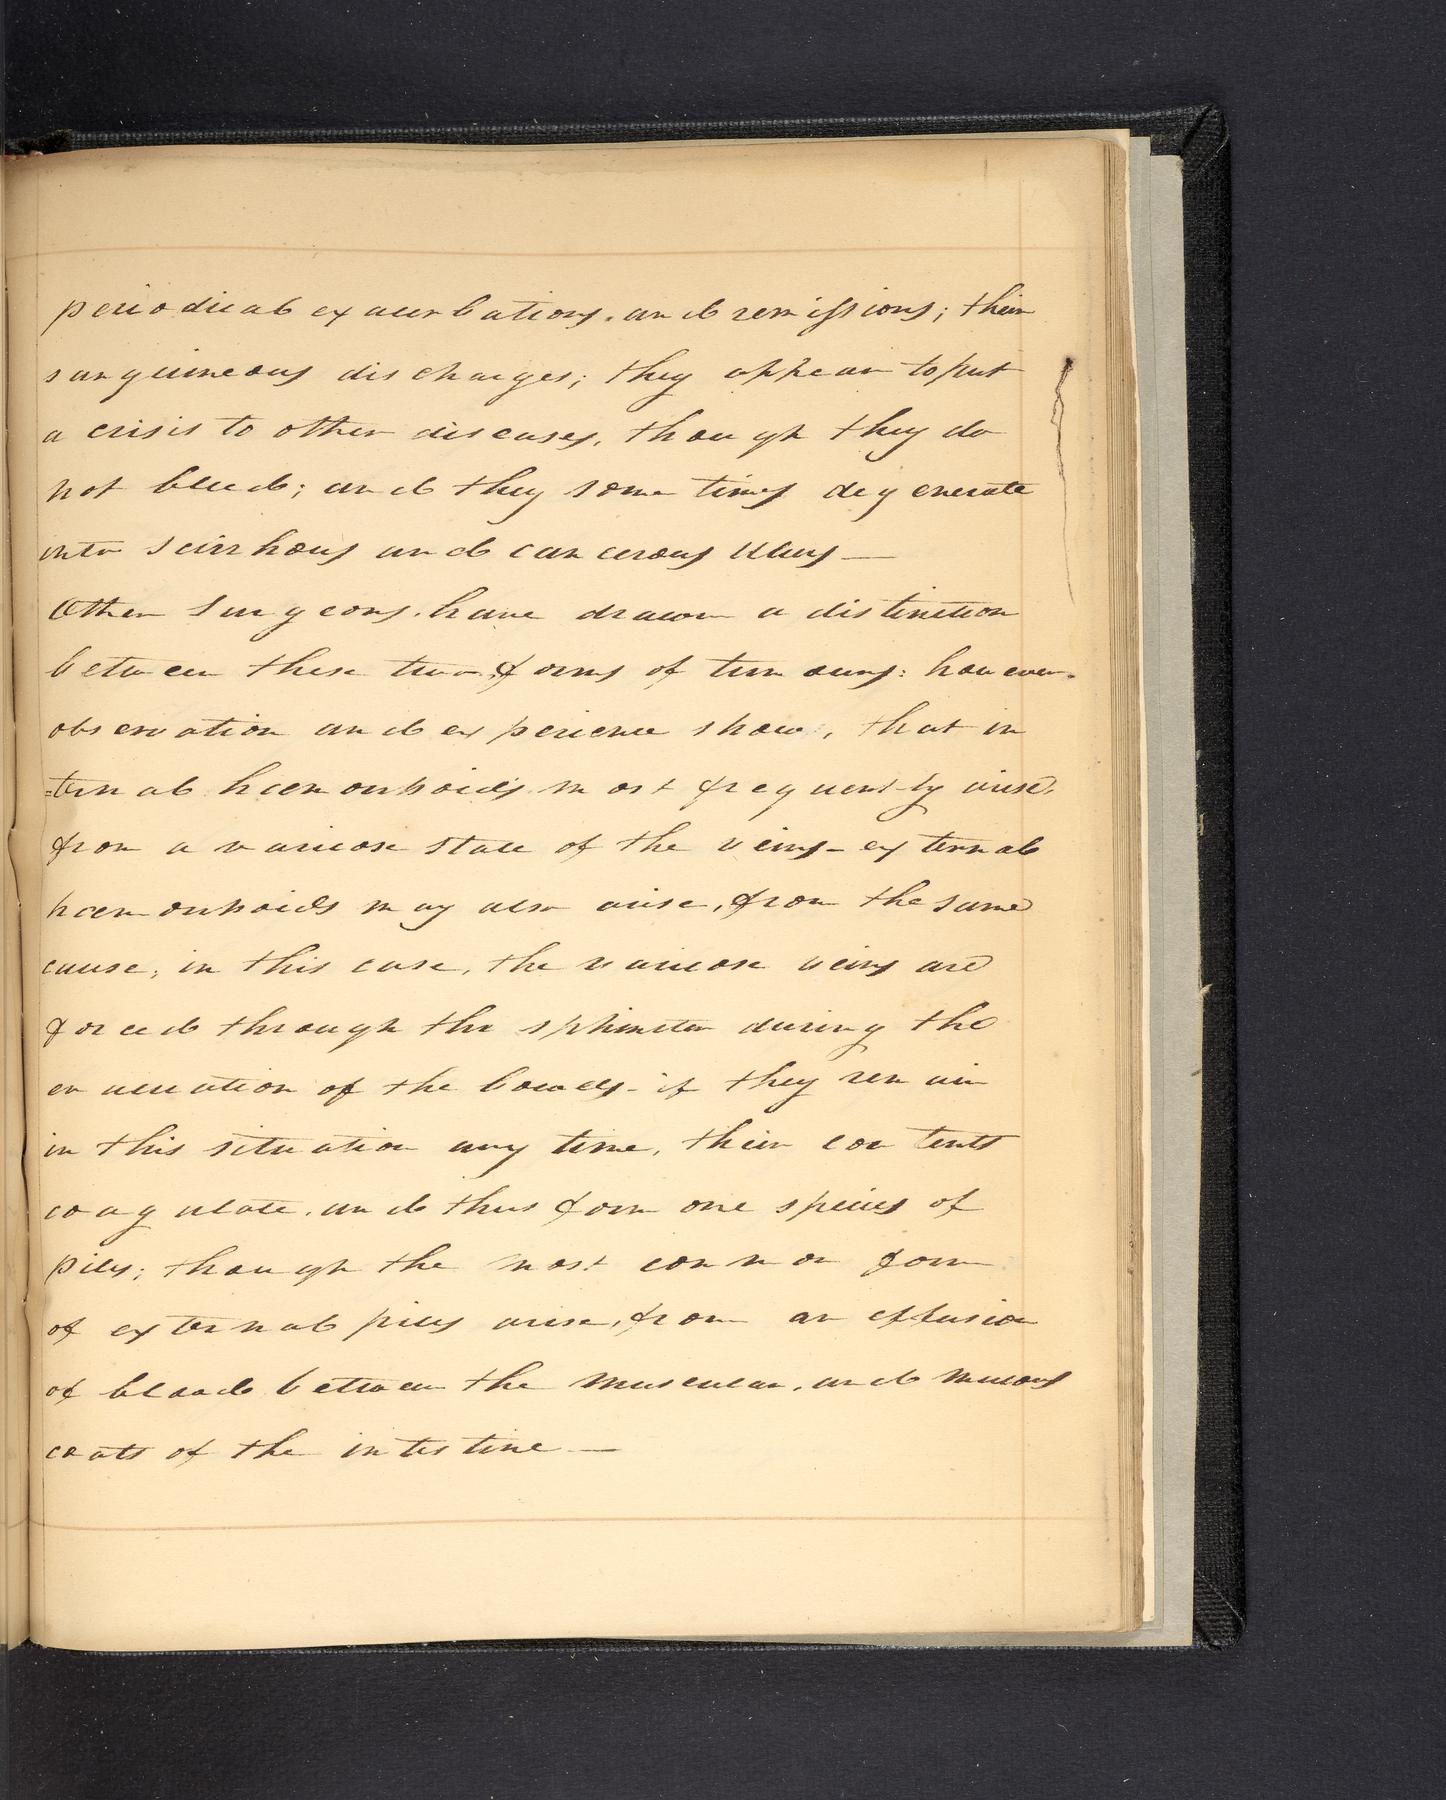 periodical exacerbations, and remissions; their
sanguineous discharges; they appear to put
a crisis to other diseases, though they do
not bleed; and they sometimes degenerate
into scirrhous and cancerous ulcers —
Other Surgeons have drawn a distinction
between these two forms of tumours: however
observation and experience show, that in
=ternal haemorrhoids most frequently arise,
from a varicose state of the veins - external
haemorrhoids may also arise, from the same
cause; in this case, the varicose veins are
forced through the sphincter during the
evacuation of the bowels - if they remain
in this situation any time, their contents
coagulate, and thus form one species of
piles; though the most common form
of external piles arise, from an effusion
of blood between the muscular, and mucous
coats of the intestine —